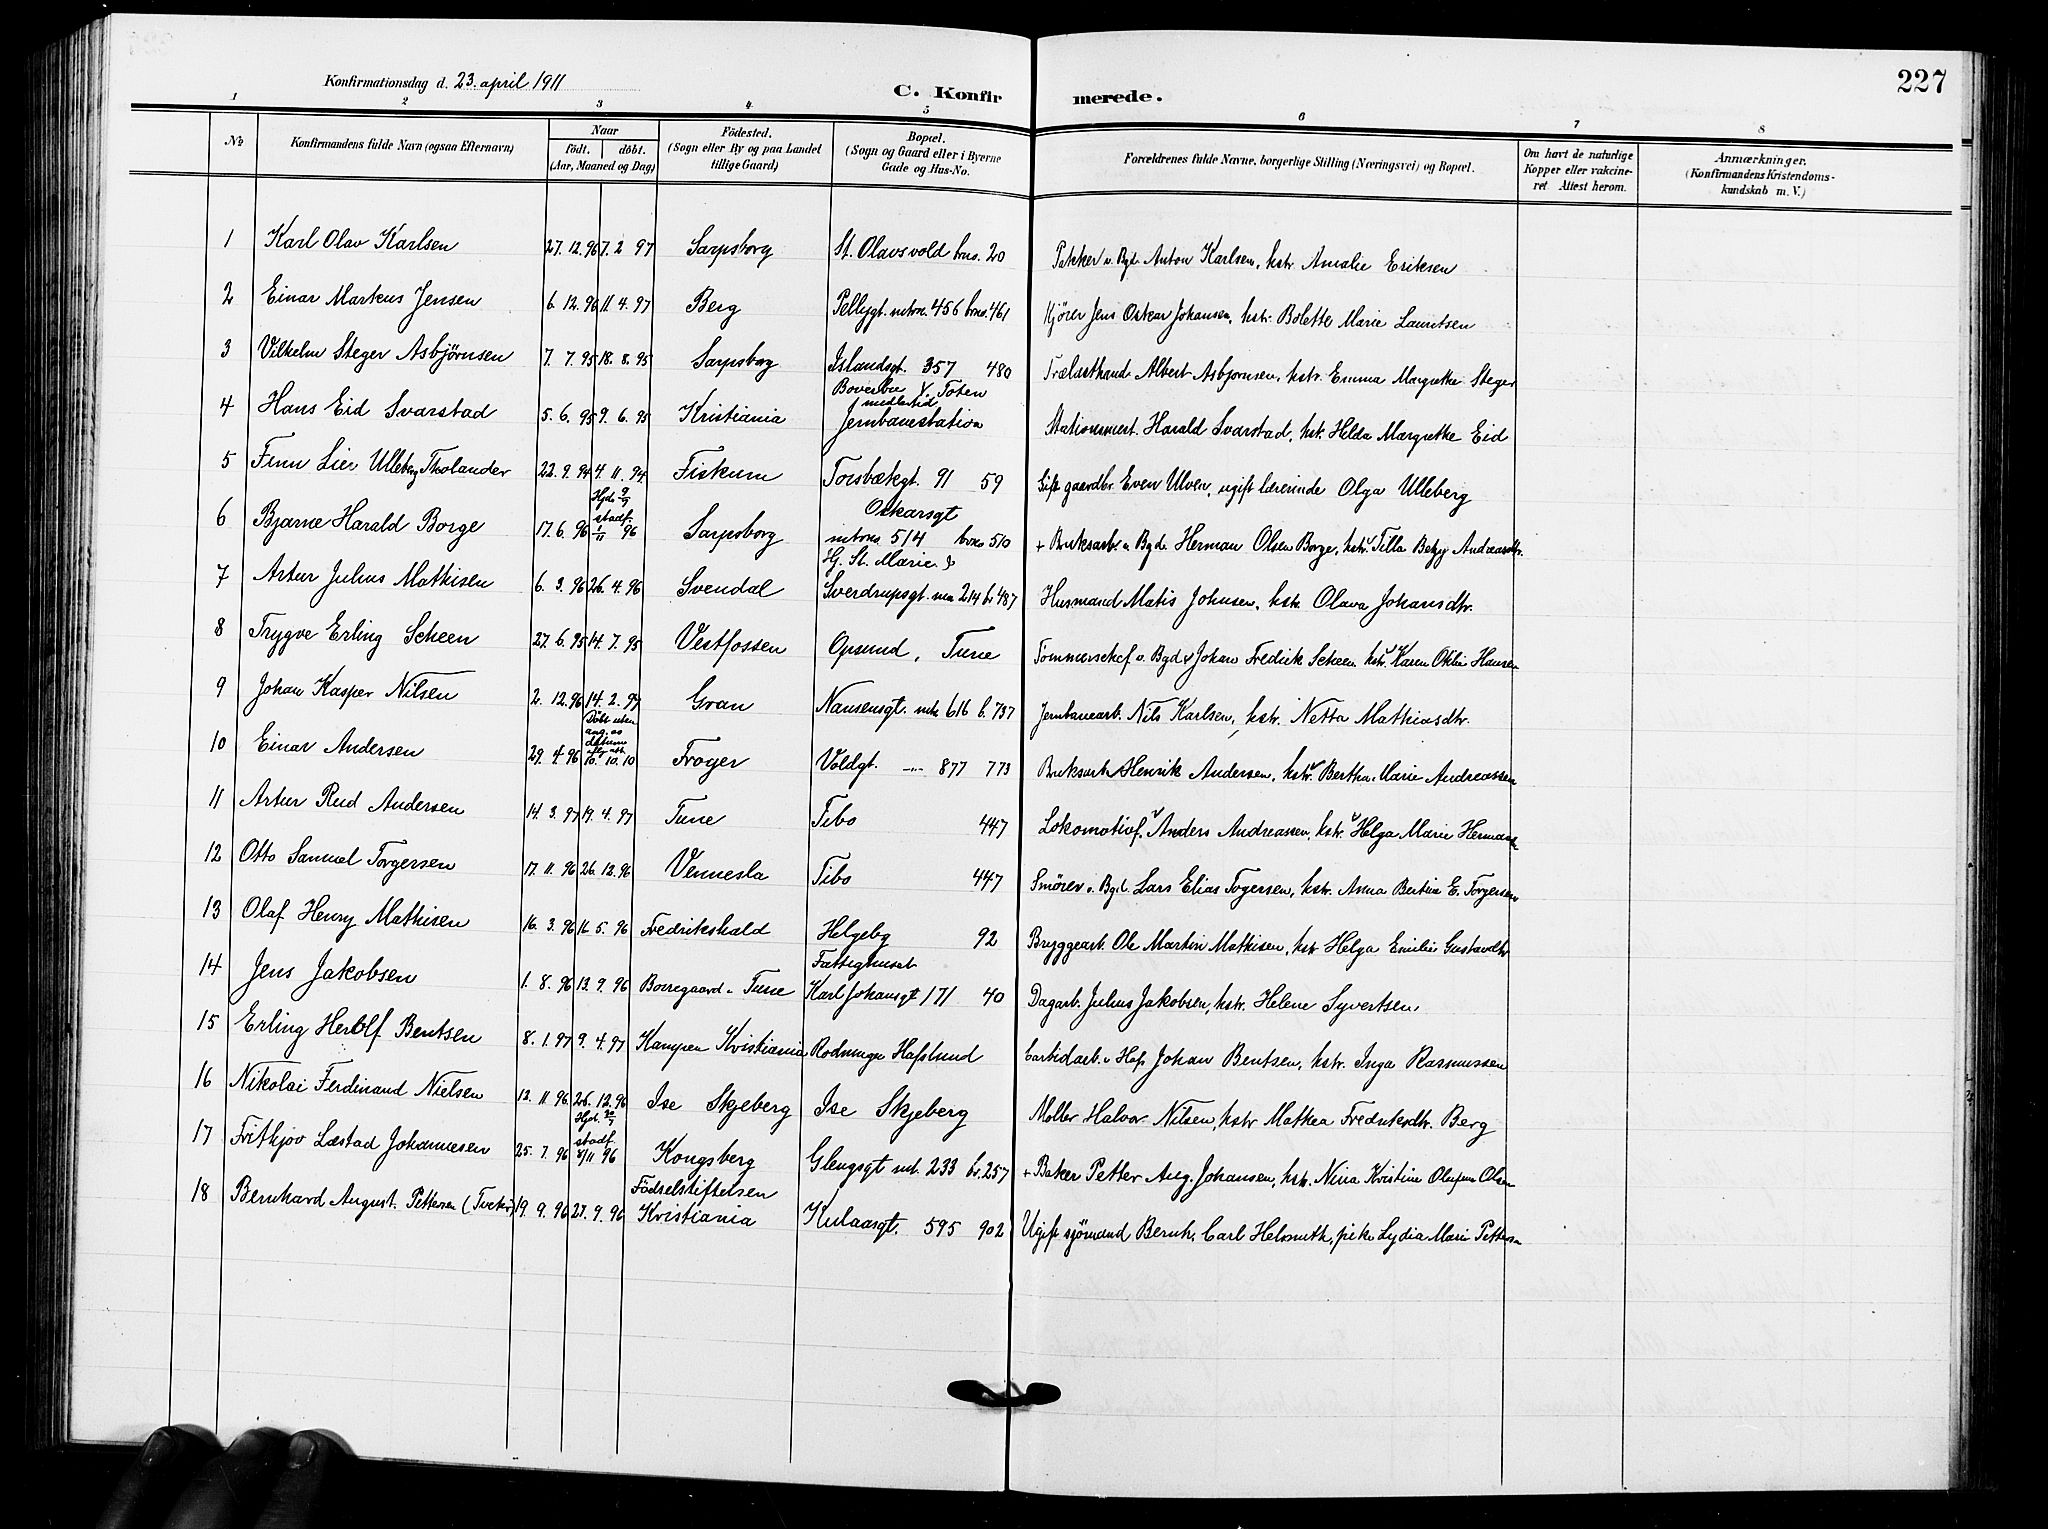 Konfirmationsdag d. 23. april 1911
C. Konfirmerede.
227
1 2 3 4 5 6 7 8
№ Konfirmandens fulde Navn (ogsaa Efternavn) Naar födt. döbt. (Aar, Maaned og Dag) Födested. (Sogn eller By og paa Landet tillige Gaard) Bopæl. (Sogn og Gaard eller i Byerne Gade og Hus-No. Forældrenes fulde Navne, borgerlige Stilling (Næringsvei) og Bopæl. Om havt de naturlige Kopper eller vakcineret Attest herom. Anmærkninger. (Konfirmandens Kristendomskundskab m. V.)
1 Karl Olav Karlsen 27. 12. 96 7. 2 97 Sarpsborg St. Olavsvold brno. 20 Pakker v. Bgd. Anton Karlsen, hstr. Amalie Eriksen
2 Einar Markus Jensen 6. 12. 96 11. 4. 97 Berg Pellygt. mtrno. 456 brno. 461 Kjörer Jens Oskar Johansen, hstr. Bolette Marie Lauritsen
3 Vilhelm Steger Asbjørnsen 7. 7. 95 18. 8. 95 Sarpsborg Islandsgt. 357 480 Trælasthand. Albert Asbjørnsen, hstr. Emma Margrethe Steger
4 Hans Eid Svarstad 5. 6. 95 9. 6. 95 Kristiania V. Toten medlertid Jernbanestation Stationsmest. Harald Svarstad, hstr. Helda Margrethe Eid
5 Finn Lier Ulleberg Tholander 22. 9. 94 4. 11. 94 Fiskum Torsbækgt. 91 59 Gift gaardbr. Even Ulven, ugift lærerinde Olga Ulleberg
6 Bjarne Harald Borge 17. 6. 96 Hjd. 9/9 stadf. 1/11 96 Sarpsborg Oskarsgt mtrno. 514 brno 510 + Bruksarb. v. Bgd. Herman Olsen Borge, hstr. Tilla Betzy Andreasdtr.
7 Artur Julius Mathisen 6. 3. 96 26. 4. 96 Svendal Hj. St. Marie & Sverdrupsgt. mn 214 br 487 Husmand Matis Johnsen, hstr. Olava Johansdtr.
8 Trygve Erling Scheen 27. 6. 95 14. 7. 95 Vestfossen Opsund, Tune Tommerschef v. Bgd Johan Fredrik Scheen hstr. Karen Oklie Hansen
9 Johan Kasper Nilsen 2. 12. 96 14. 2. 97 Gran Nansensgt. mtr 616 b. 737 Jernbanearb. Nils Karlsen, hstr. Netta Mathiasdtr.
10 Einar Andersen 29. 4 96 Döbt uten ang. av datum 10. 10. 10 Trøger Voldgt. 877 773 Bruksarb Henrik Andersen, hstr. Bertha Marie Andreassen
11 Artur Rud Andersen 14. 3. 97 19. 4. 97 Tune Tibo 447 Lokomotivf. Anders Andreassen, hstr. Helga Marie
12 Otto Samuel Torgersen 17. 11. 96 26. 12. 96 Vennesla Tibo 447 Smører v. Bgd. Lars Elias Togersen, hstr. Anna Bertine E. Torgersen
13 Olaf Henry Mathisen 16. 3. 96 16 5. 96 Fredrikshald Helgeby 92 Bryggearb. Ole Martin Mathisen, hstr Helga Emilie Gustavdtr
14 Jens Jakobsen 1. 8. 96 13. 9. 96 Borregaard v. Tune Fattighuset Karl Johansgt 171 40 Dagarb. Julius Jakobsen, hstr. Helene Syvertsen,
15 Erling Herolf Bentsen 8. 1. 97 9. 4. 97 Kampen Kristiania Hafslund Carbidarb. v Hafs Johan Bentsen, hstr. Inga Rasmussen
16 Nikolai Ferdinand Nielsen 12. 11. 96 26. 12. 96 Ise Skjeberg Ise Skjeberg Møller Halvor Nilsen, hstr Mathea Fredriksdtr. Berg
17 Frithjov Læstad Johannesen 25. 7. 96 Hjd. stadf. 8/11 96 Kongsberg Glengsgt mt. 233 br. 257 + Baker Petter Aug. Johansen, hstr. Nina Kristine Olufine Olsen
18 Bernhard August Pettersen 19. 9. 96 27. 9. 96 Födselstiftelsen Kristiania Kulaasgt. 595 902 Ugift sjømand Bernh. Carl Helmuth, pike Lydia Marie Pettersen